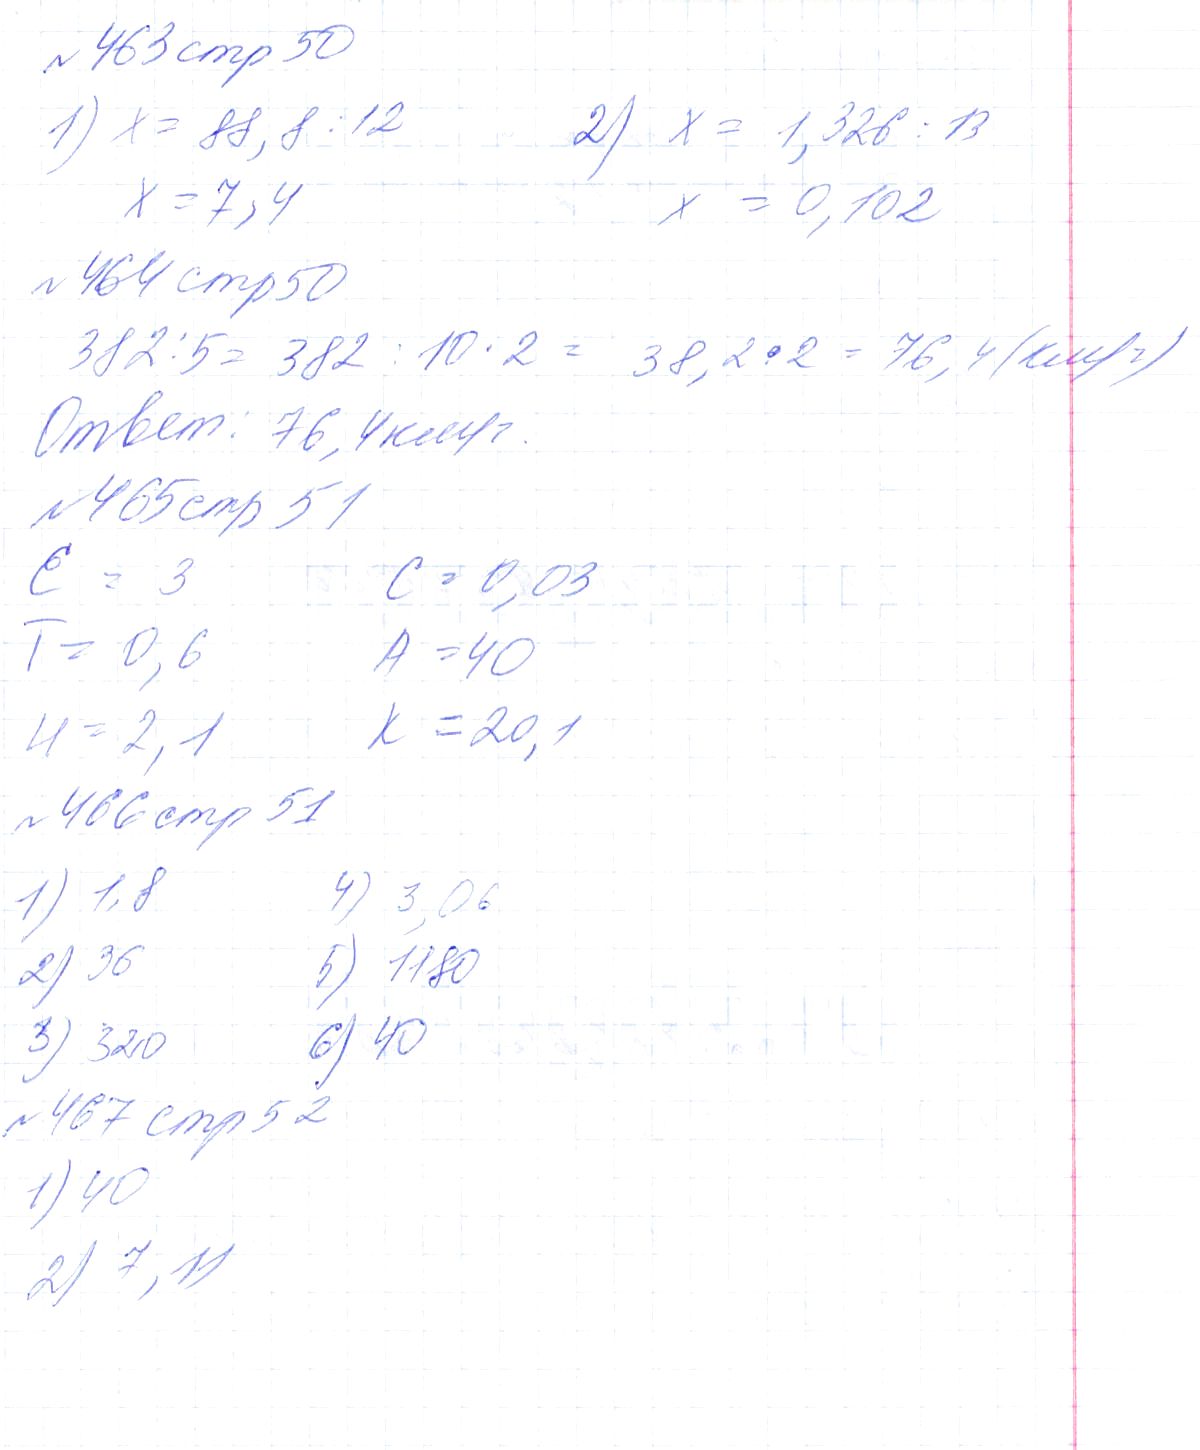 №463 стр 50
1) x = 88,8 : 12 2) x = 1,326 : 13
x = 7,4 x = 0,102
№464 стр 50
382 : 5 = 382 : 10 · 2 = 38,2 · 2 = 76,4 (км/ч)
Ответ: 76,4 км/ч.
№465 стр 51
Е = 3 С = 0,03
Т = 0,6 А = 40
И = 2,1 К = 20,1
№466 стр 51
1) 1,8 4) 3,06
2) 36 5) 1180
3) 320 6) 40
№467 стр 52
1) 40
2) 7,11